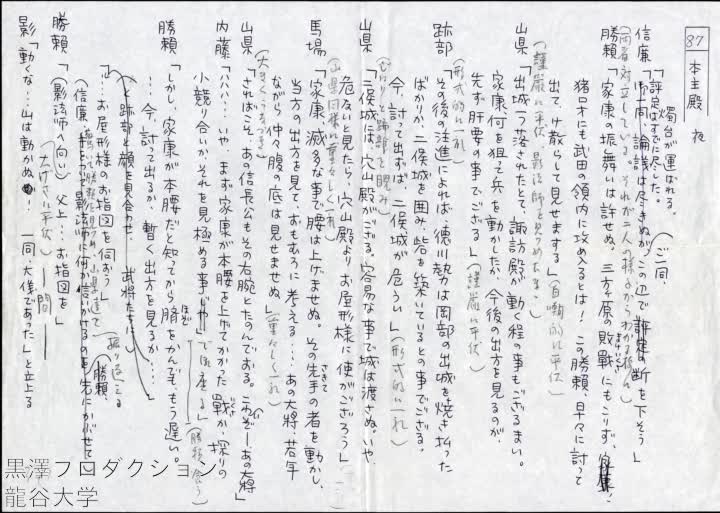 87 本主殿 夜
燭台が運ばれる。
信廉「評定はすでに尽した。ご一同、
「ご一同、論議は尽きぬが、この辺で 断を下そう」
(両者対立している。それが二人の様子からわかる
勝頼「家康の振舞いは許せぬ。三方ヶ原の敗戦にもこりず、
猪口才にも武田の領内に攻め入るとは！この勝頼、早々に討って
出て、け散らして見せまする」(自動的に平伏)
(謹厳に平伏、影法師を見つめたまま)
山県「出城一つ落されたとて、諏訪殿が動く程の事もござるまい。
家康、何を狙って兵を動かしたか、今後の出方を見るのが、
先ず肝要の事でござる」(謹厳に平伏)
(形式的に一礼)
跡部「その後の注進によれば、徳川勢は岡部の出城を焼き払った
ばかりか、二俣城を囲み、砦を築いているとの事でござる。
今、討って出ずば、二俣城が危うい」(形式的に一礼)
(じろりと跡部を睨み)
山県「二俣城には、穴山殿がござる。容易な事で城は渡さぬ。いや、
危ないと見たら、穴山殿よりお屋形様に使がござろう」
(山県同様に重々しく一礼)
馬場「家康、滅多な事で腰は上げませぬ。その先手の者を動かし、
当方の出方を見て、おもむろに考える…あの大将、若年
ながら仲々腹の底は見せませぬ」(重々しく一礼)
(大きくうなづき)
山県「さればこそ、あの信長公もその右腕とたのんでおる。こわいぞーあの大将」
内藤「ハハハ…いや、まず家康が本腰を上げてかかた戦か、探りの
小競り合いか、それを見極める事じゃ」
勝頼「しかし、家康が本腰だと知ってから臍をかんでも、もう遅い。
…今、討って出るか、暫く出方を見るか…
と跡部と顔を見合わせ、武将たちに
「…お屋形様のお指図を伺おう」
勝頼、
勝頼「(影法師へ向い)父上…お指図を」
(大げさに平伏) ―間―
影「動くな…山は動かぬぞ！一同、大儀であった」と立上る
黒澤プロダクション
龍谷大学